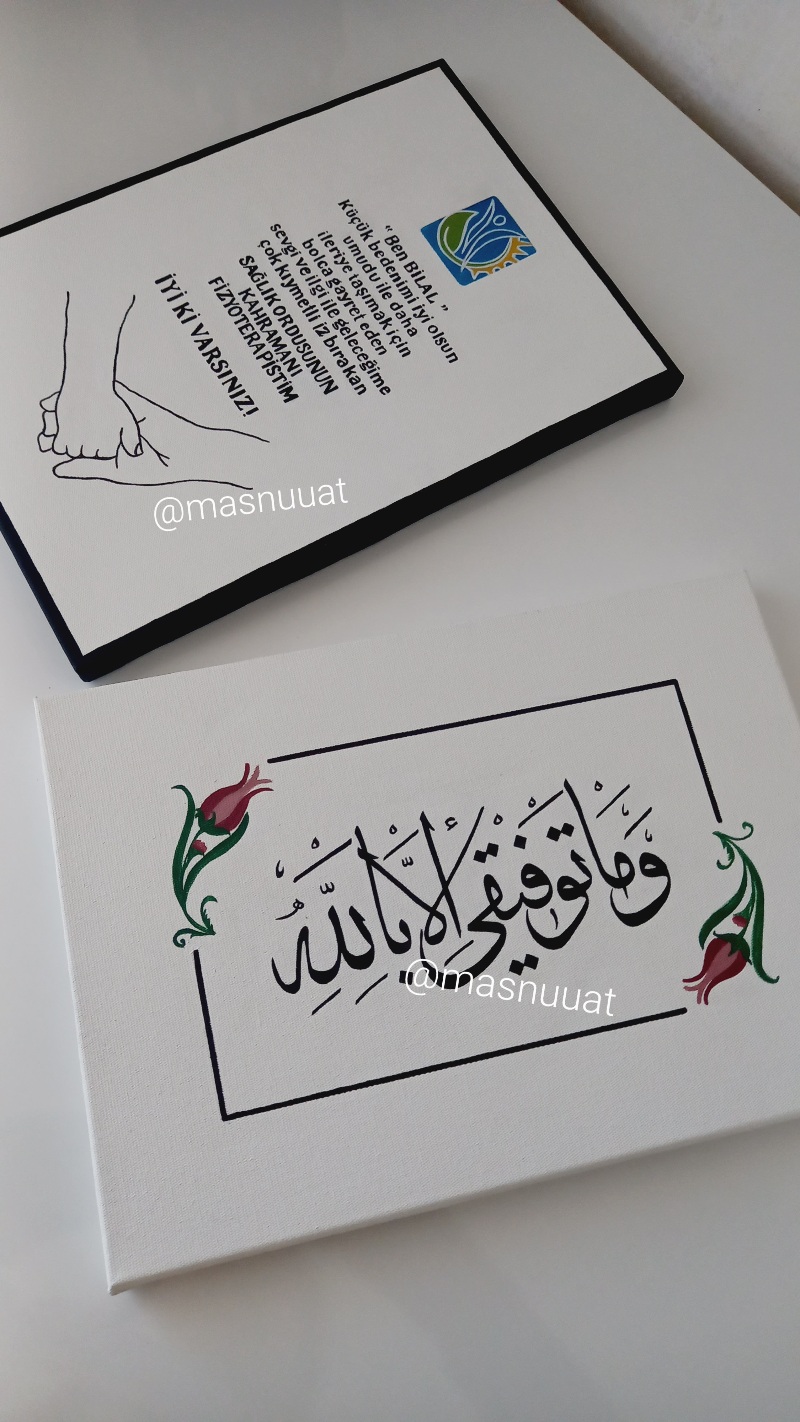 “Ben BiLAL”
Küçük bedenimi iyi olsun
umudu ile daha
ileriye taşımak için
bolca gayret eden
sevgi ve ilgi ile geleceğime
çok kıymetli iz bırakan
SAĞLIK ORDUSUNUN
KAHRAMANI
FİZYOTERAPİSTİM
İYİ Kİ VARSINIZ!
@masnuuat
وَمَا تَوْفِيقِي إِلَّا بِاللَّهِ
@masnuuat